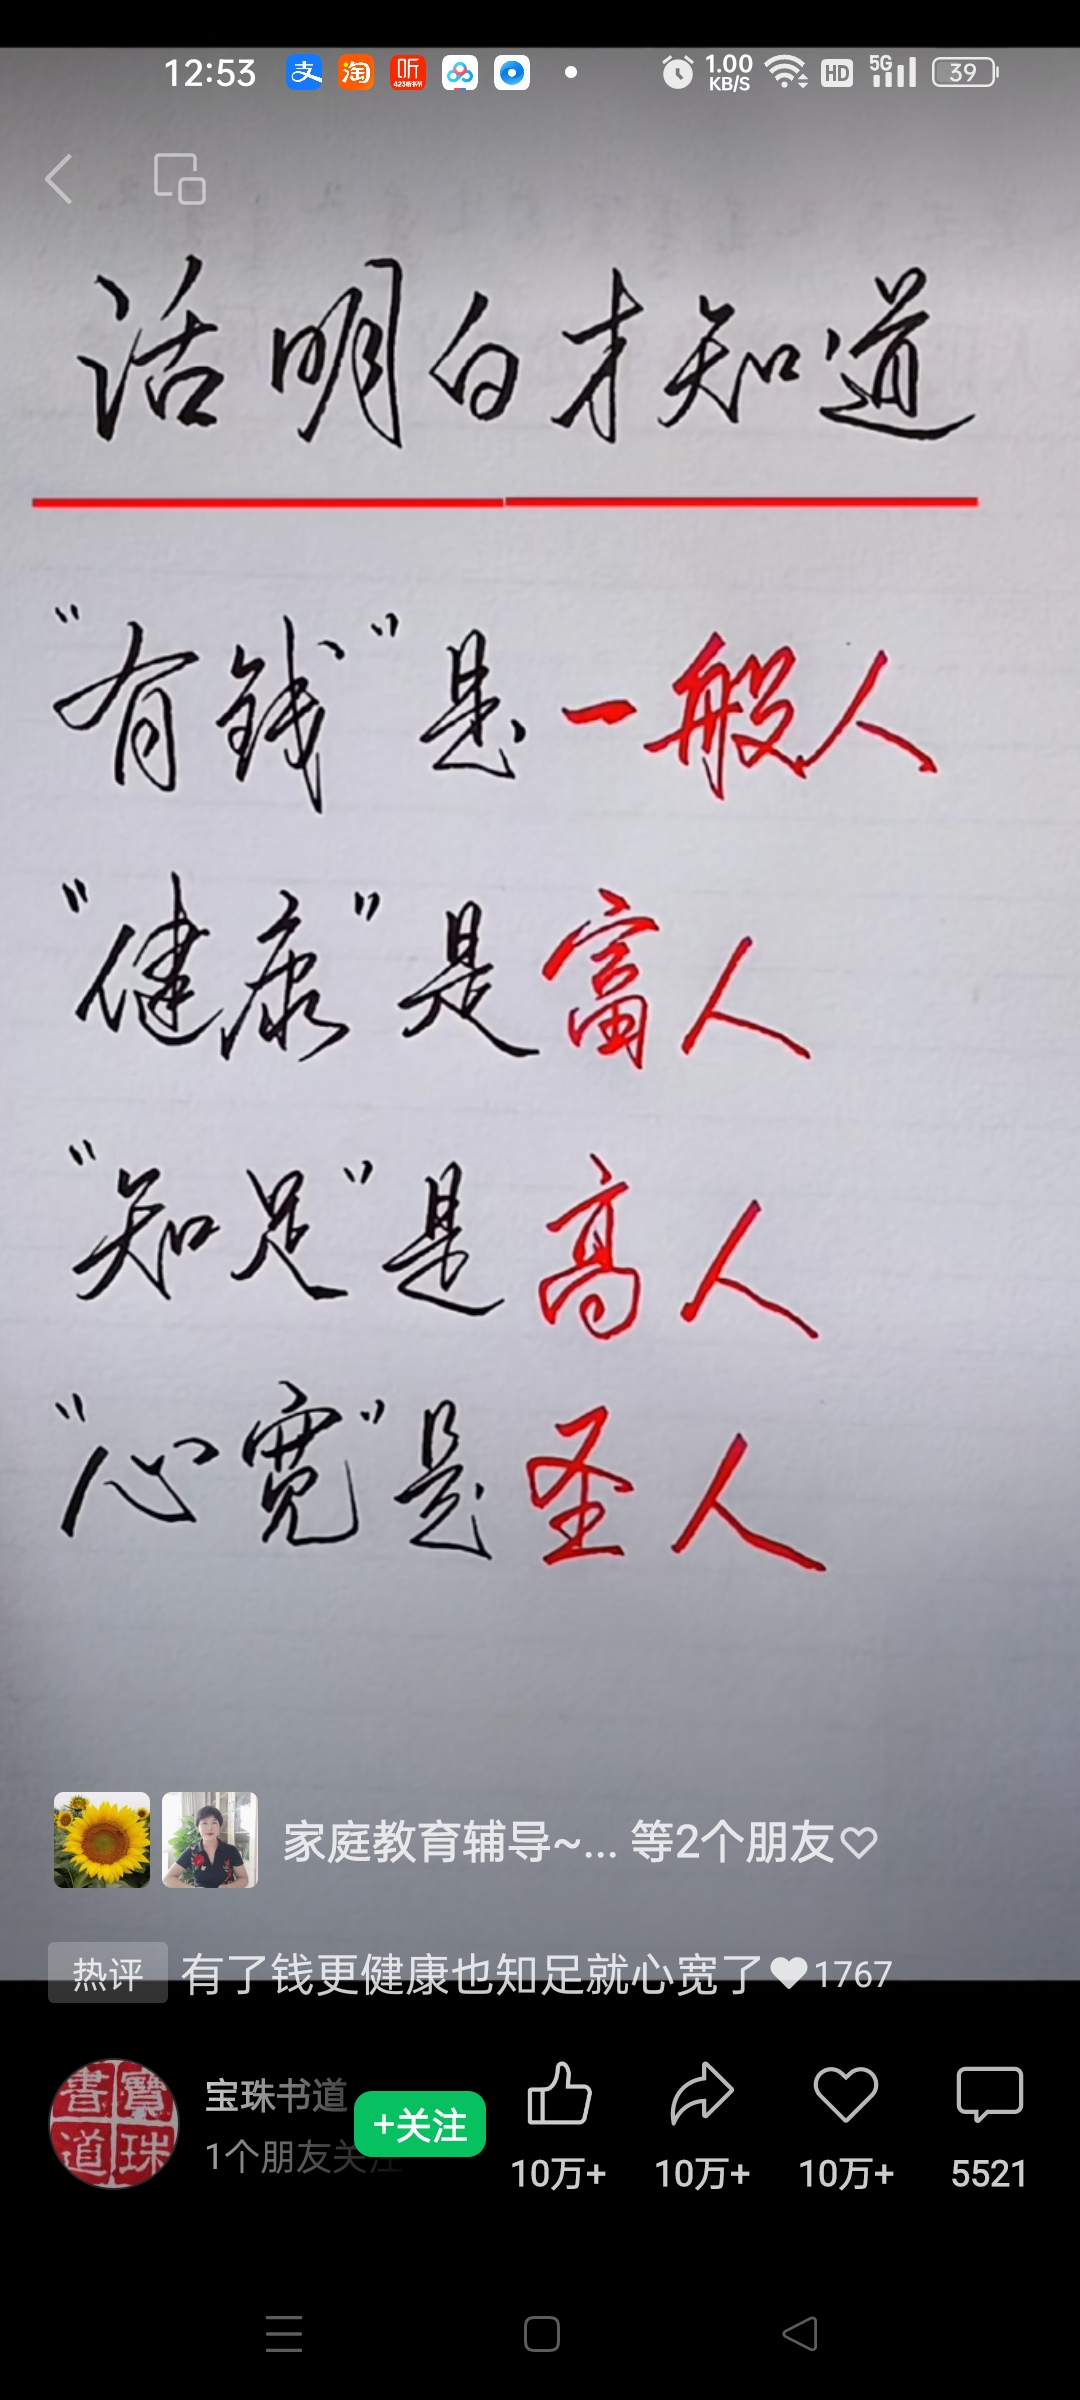 12:53 支 淘 听 1.00 KB/S HD 5G 39
423听书节
活明白才知道
"有钱"是一般人
"健康"是富人
"知足"是高人
"心宽"是圣人
家庭教育辅导~... 等2个朋友
热评 有了钱更健康也知足就心宽了 1767
書寶道珠
宝珠书道
1个朋友关注
+关注
10万+ 10万+ 10万+ 5521